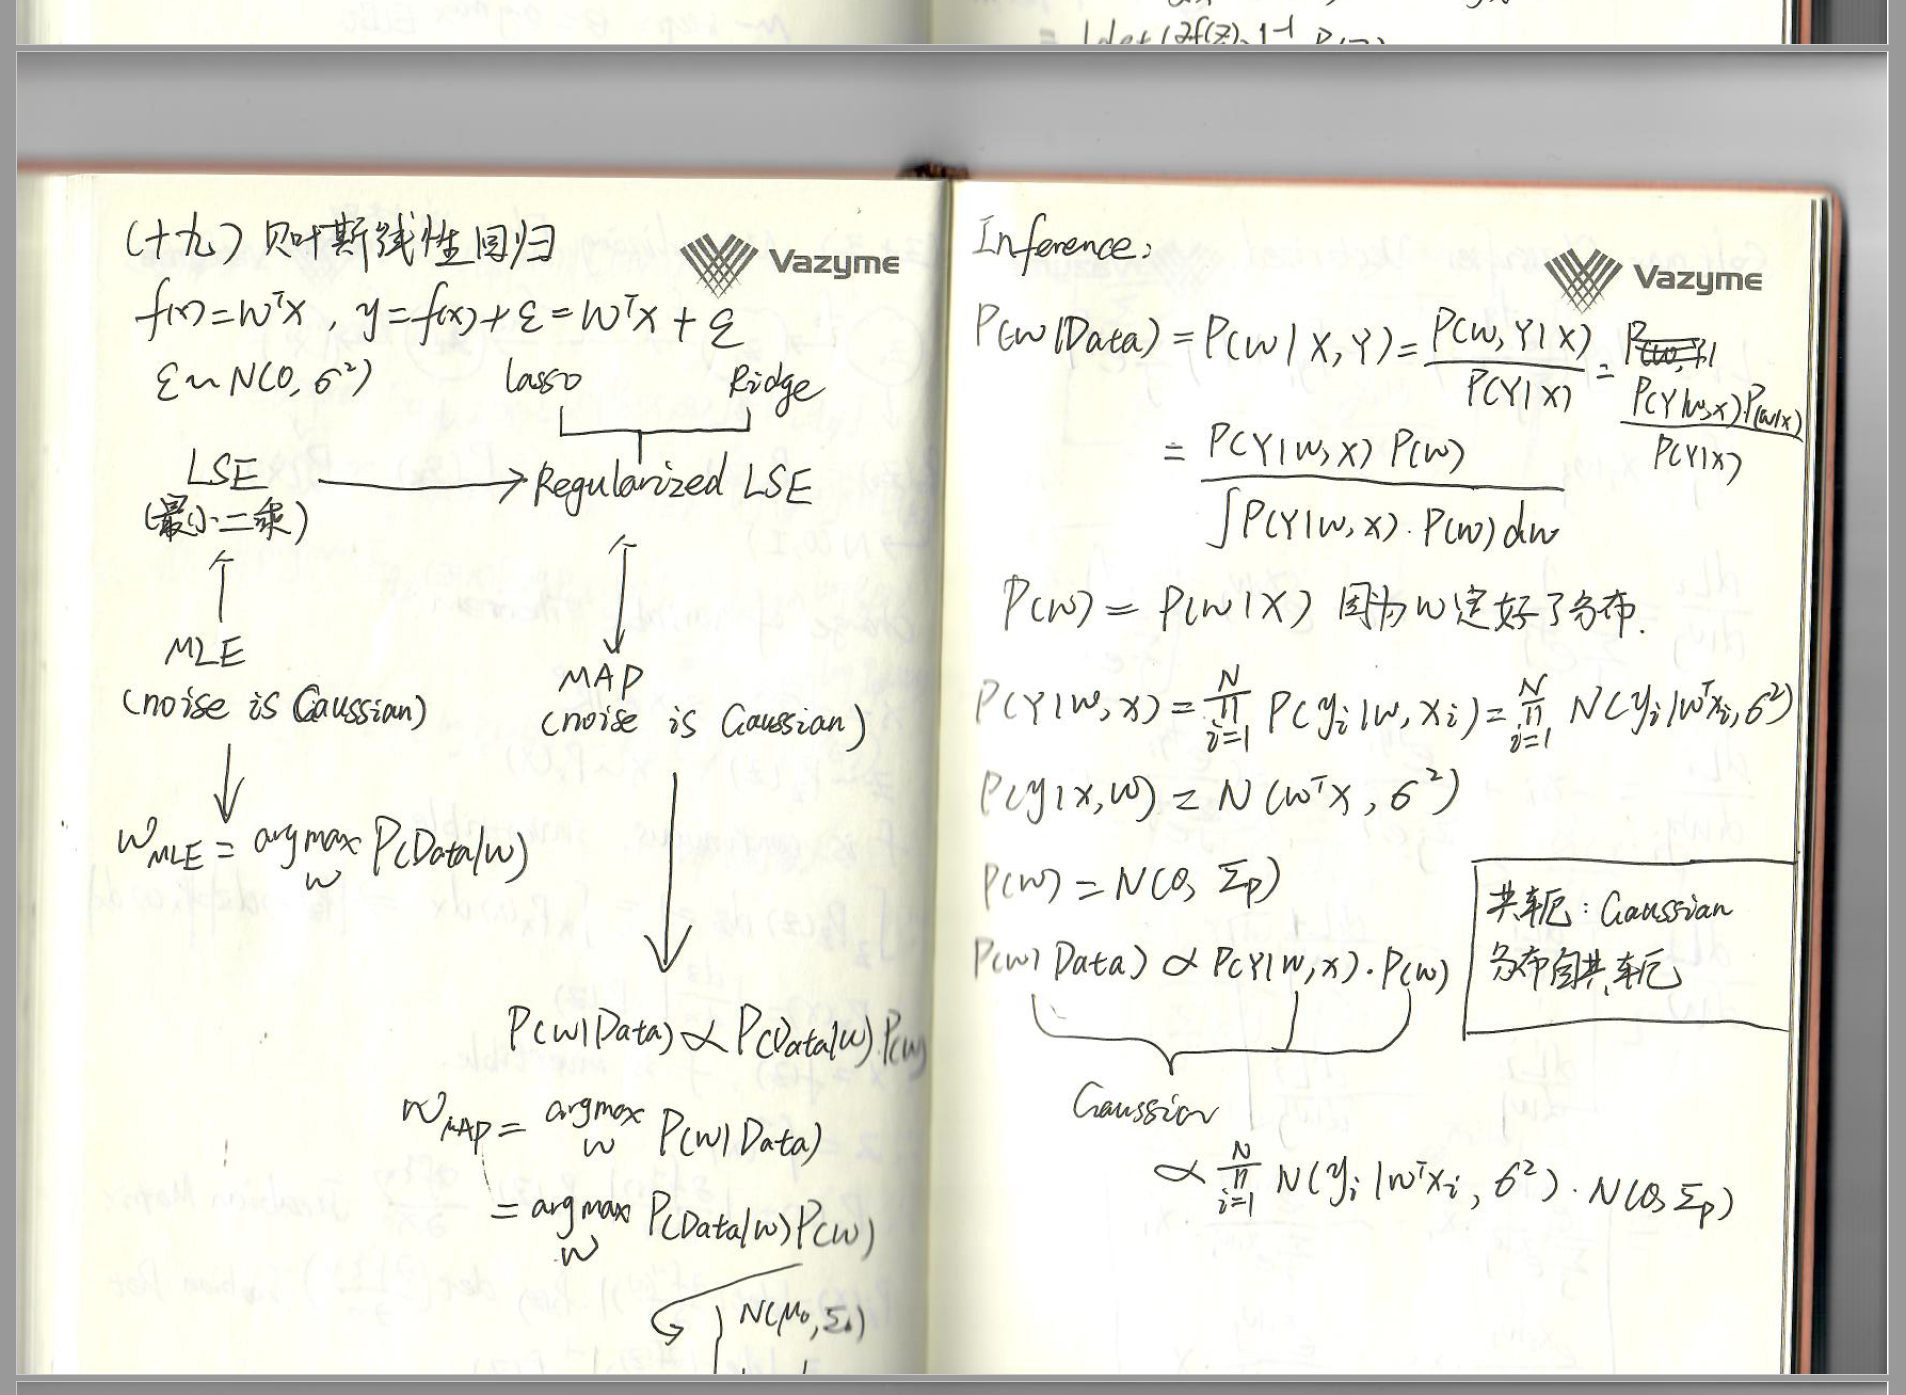 (十九) 贝叶斯线性回归
Vazyme
f(x) = wᵀx , y = f(x) + ε = wᵀx + ε
ε ~ N(0, σ²)
lasso Ridge
LSE → Regularized LSE
(最小二乘)
MLE
(noise is Gaussian)
MAP
(noise is Gaussian)
w_MLE = argmax_w P(Data|w)
P(w|Data) ∝ P(Data|w).P(w)
w_MAP = argmax_w P(w|Data)
= argmax_w P(Data|w) P(w)
N(μ₀, Σ₀)
Inference:
Vazyme
P(w|Data) = P(w|X,Y) = P(w,Y|X) / P(Y|X) = P(Y|w,x).P(w|x) / P(Y|x)
= P(Y|w,x) P(w) / ∫P(Y|w,x).P(w)dw
P(w) = P(w|X) 因为w定好了分布.
P(Y|w,x) = ∏_{i=1}^{N} P(y_i|w,x_i) = ∏_{i=1}^{N} N(y_i|wᵀx_i, σ²)
P(y|x,w) = N(wᵀx, σ²)
P(w) = N(0, Σp)
共轭: Gaussian
分布自共轭
P(w|Data) ∝ P(Y|w,x).P(w)
Gaussian
∝ ∏_{i=1}^{N} N(y_i|wᵀx_i, σ²).N(0, Σp)